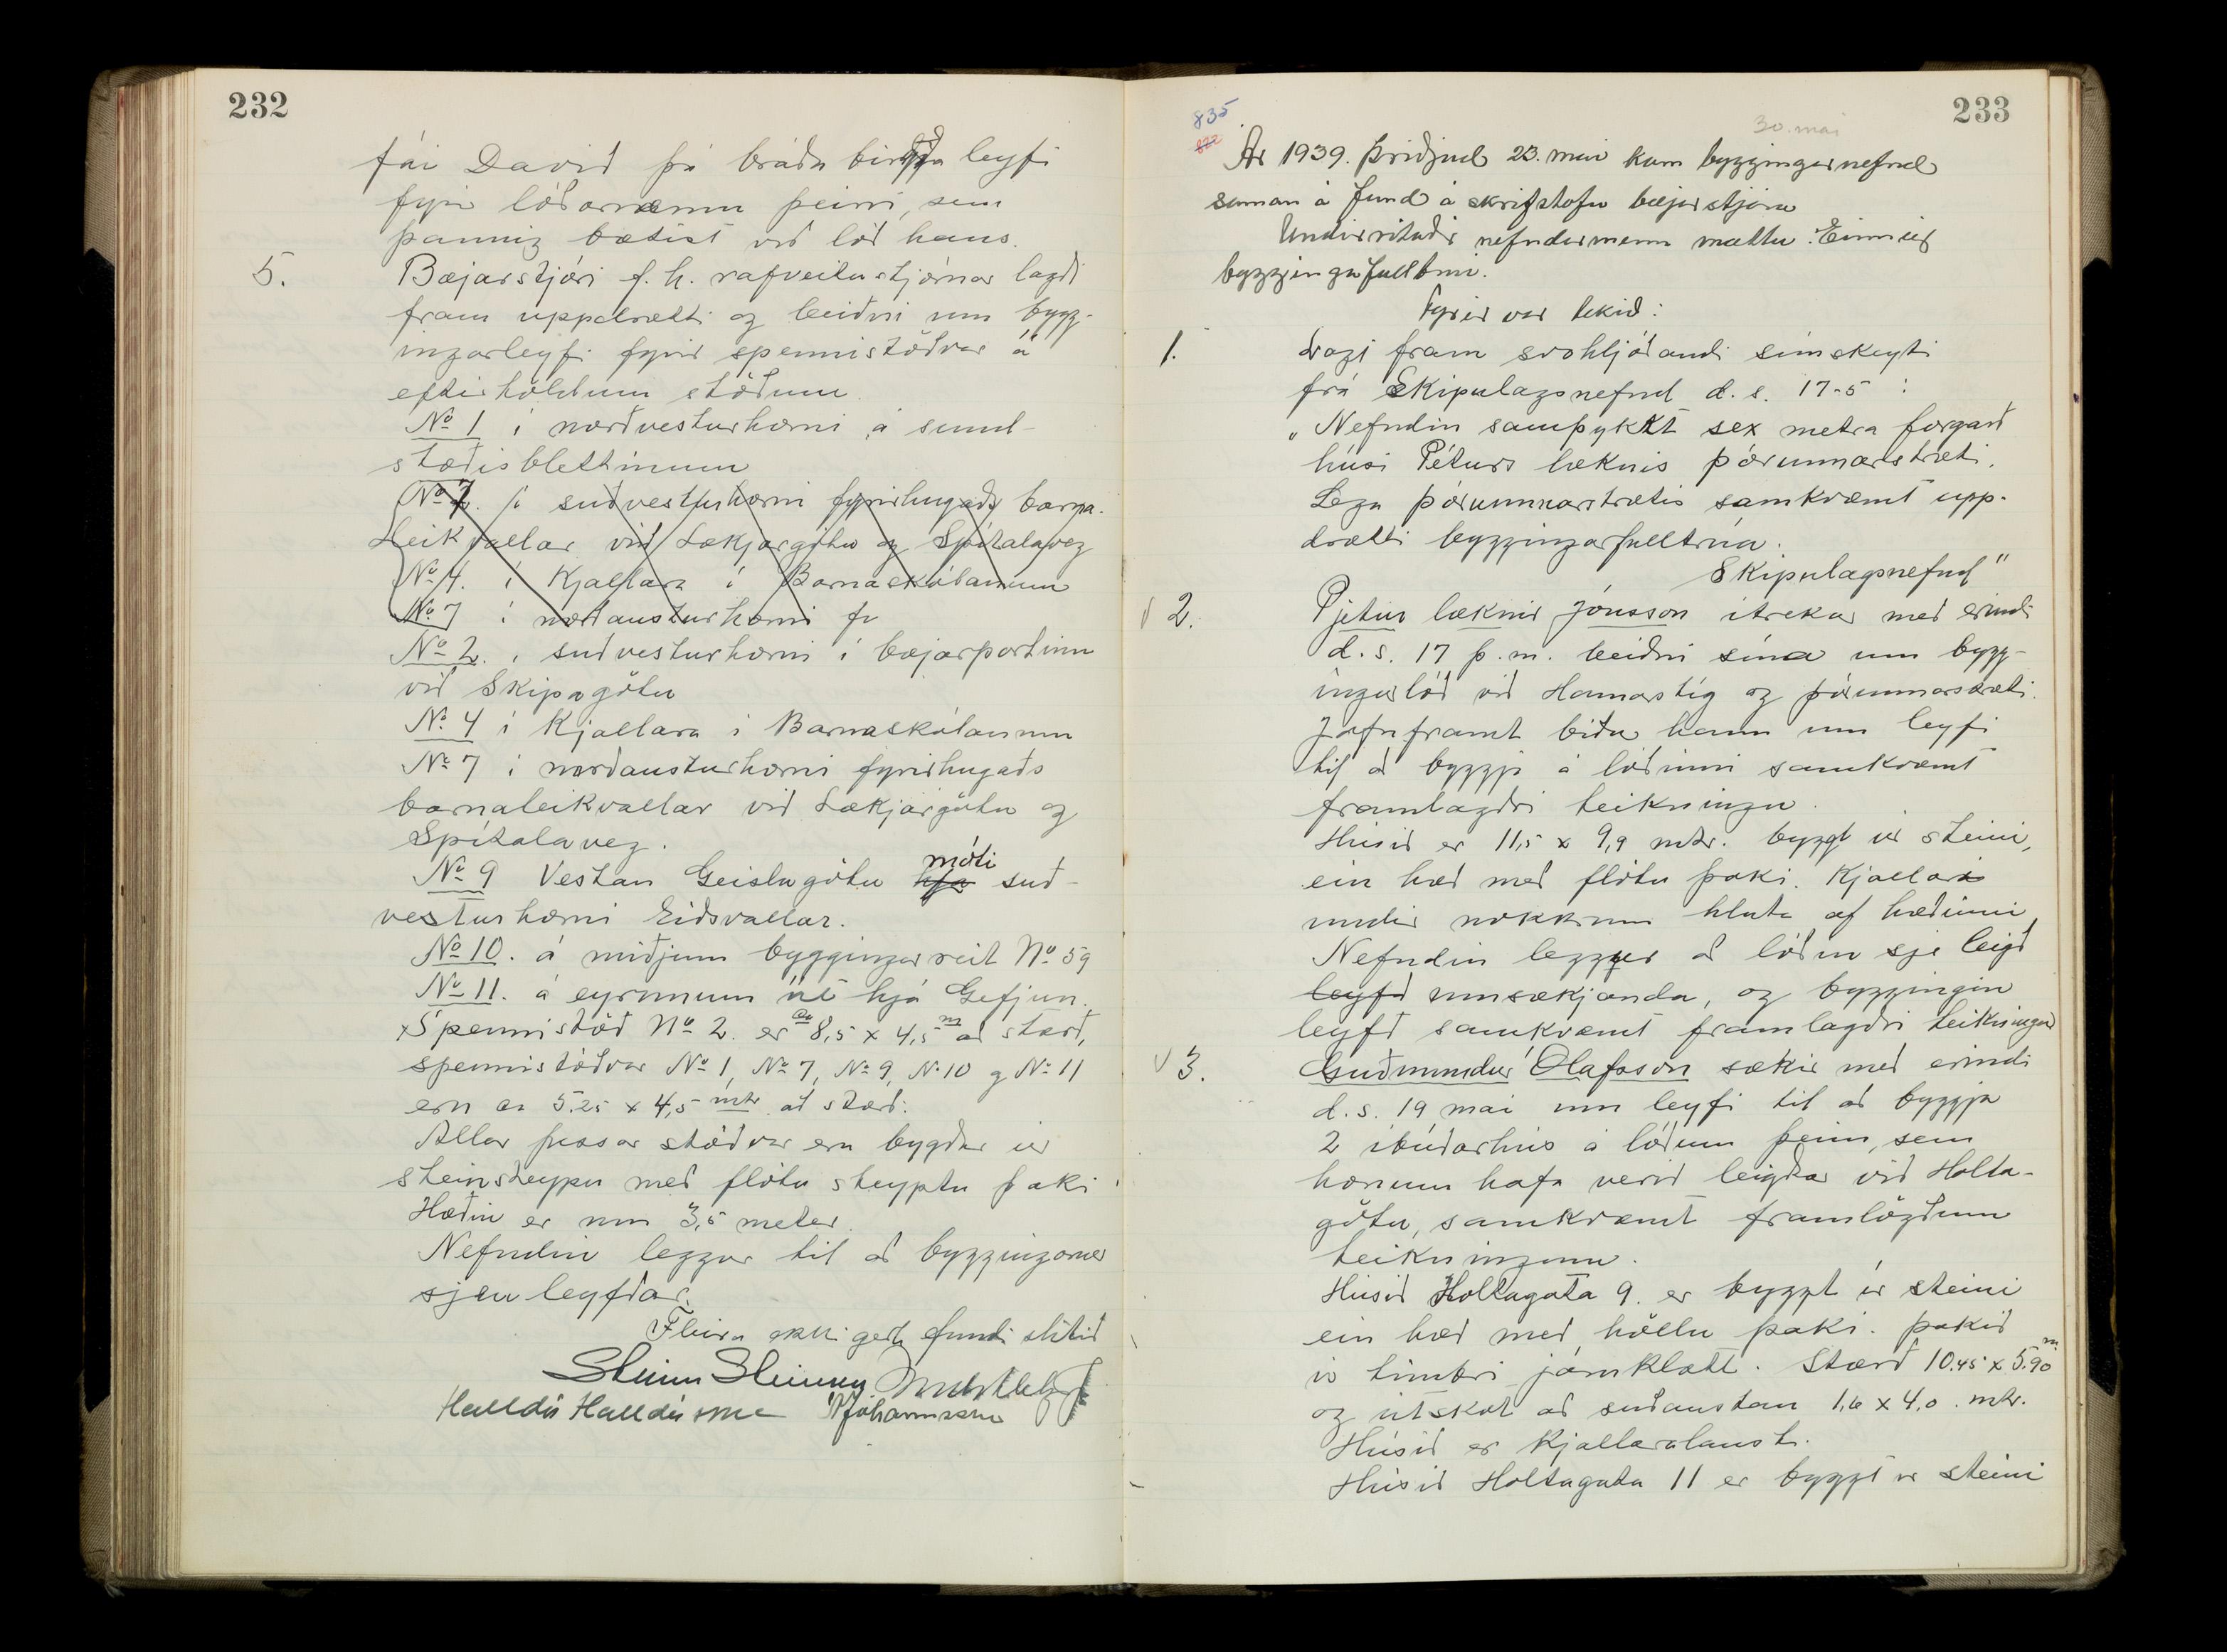 232
fái David þá bráðabirgða leyfi
fyrir lóðarræmu þeirri, sem
þannig bætist við lóð hans.
5. Bæjarstjóri f. h. rafveitustjórnar lagði
fram uppdrætti og beiðni um bygg-
ingarleyfi fyrir spennistöðvar á
eftirtöldum stöðum
No 1 í norðvesturhorni á sund-
stæðisblettinum
No 7. í suðvesturhorni fyrirhugaðs barna-
leikvallar við Lækjargötu og Spítalaveg
No 4. í Kjallara í Barnaskólanum
No 7 í norðausturhorni fy
No 2. í suðvesturhorni í bæjarportinu
við Skipagötu
No 4 í Kjallara í Barnaskólanum
No 7 í norðausturhorni fyrirhugaðs
barnaleikvallar við Lækjargötu og
Spítalaveg.
No 9 Vestan Geislagötu hjá móti suð-
vesturhorni Eiðsvallar.
No 10. á miðjum byggingarreit No 59
No 11. á eyrunum út hjá Gefjun.
x Spennistöð No 2. er ca 8,5 x 4,5 m að stærð,
spennistöðvar No 1, No 7, No 9, No 10 og No 11
eru ca 5,25 x 4,5 mtr að stærð.
Allar þessar stöðvar eru bygðar úr
steinsteypu með flötu steyptu þaki
Hæðin er um 3,5 meter.
Nefndin leggur til að byggingarnar
sjeu leyfðar.
Fleira ekki gert, fundi slitið
Steinn Steinsen
Halldór Halldórsson Jóhannsson
233
835
822
30. mai
Ár 1939. Þriðjud 23. mai kom byggingarnefnd
saman á fund á skrifstofu bæjarstjóra
Undirritaðir nefndarmenn mættu. Einnig
byggingafulltrúi.
Fyrir var tekið:
1. Lagt fram svohljóðandi símskeyti
frá Skipulagsnefnd d. s. 17-5 :
„Nefndin samþykkt sex metra forgarð
húsi Péturs læknis Þórunnarstræti.
Lega Þórunnarstrætis samkvæmt upp-
drætti byggingarfulltrúa.
Skipulagsnefnd"
v 2. Pjetur læknir Jónsson ítrekar með erindi
d. s. 17 þ. m. beiðni sína um bygg-
ingarlóð við Hamarstíg og Þórunnarstræti.
Jafnframt biður hann um leyfi
til að byggja á lóðinni samkvæmt
framlagðri teikningu.
Húsið er 11,5 x 9,9 mtr. byggt úr steini,
ein hæð með flötu þaki. Kjallari
undir nokkrum hluta af hæðinni
Nefndin leggur að lóðin sje leigð
leyfð umsækjanda, og byggingin
leyfð samkvæmt framlagðri teikningu
v 3. Guðmundur Ólafsson sækir með erindi
d. s. 19 mai um leyfi til að byggja
2 íbúðarhús á lóðum þeim, sem
honum hafa verið leigðar við Holta-
götu, samkvæmt framlögðum
teikningum.
Húsið Holtagata 9. er byggt úr steini
ein hæð með höllu þaki. Þakið
úr timbri járnklætt. Stærð 10.45 x 5.90 m
og útskot að suðaustan 1,6 x 4,0 . mtr.
Húsið er kjallaralaust.
Húsið Holtagata 11 er byggt úr steini